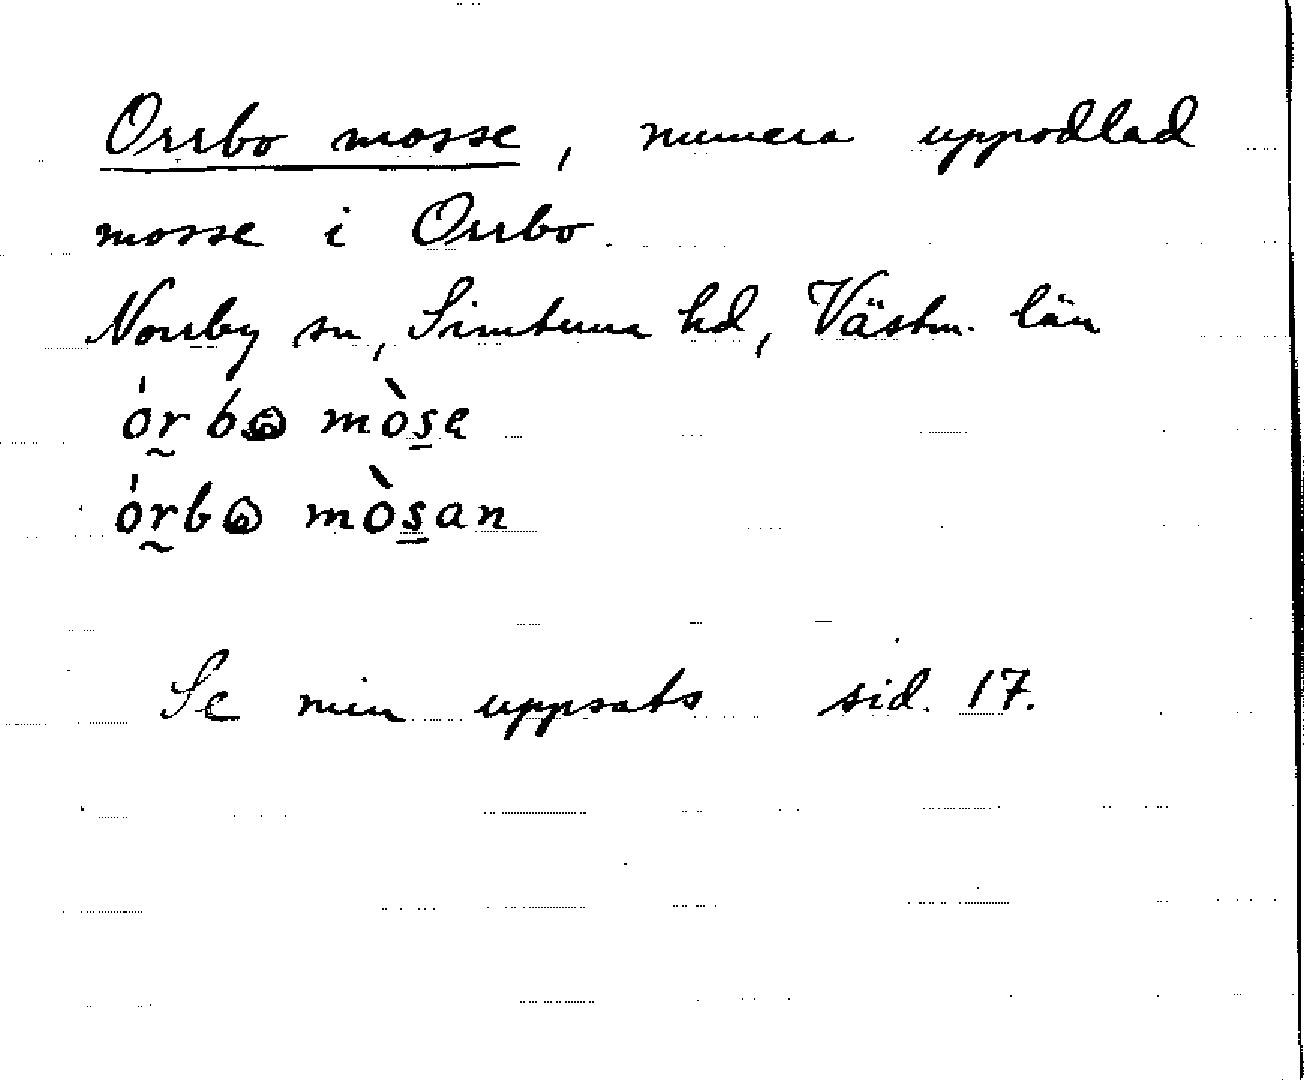 Orrbo mosse, numera uppodlad
mosse i Orrbo.
Norrby sn, Simtuna hd, Västm. län
mòse
mòsan
Se min uppsats sid. 17.